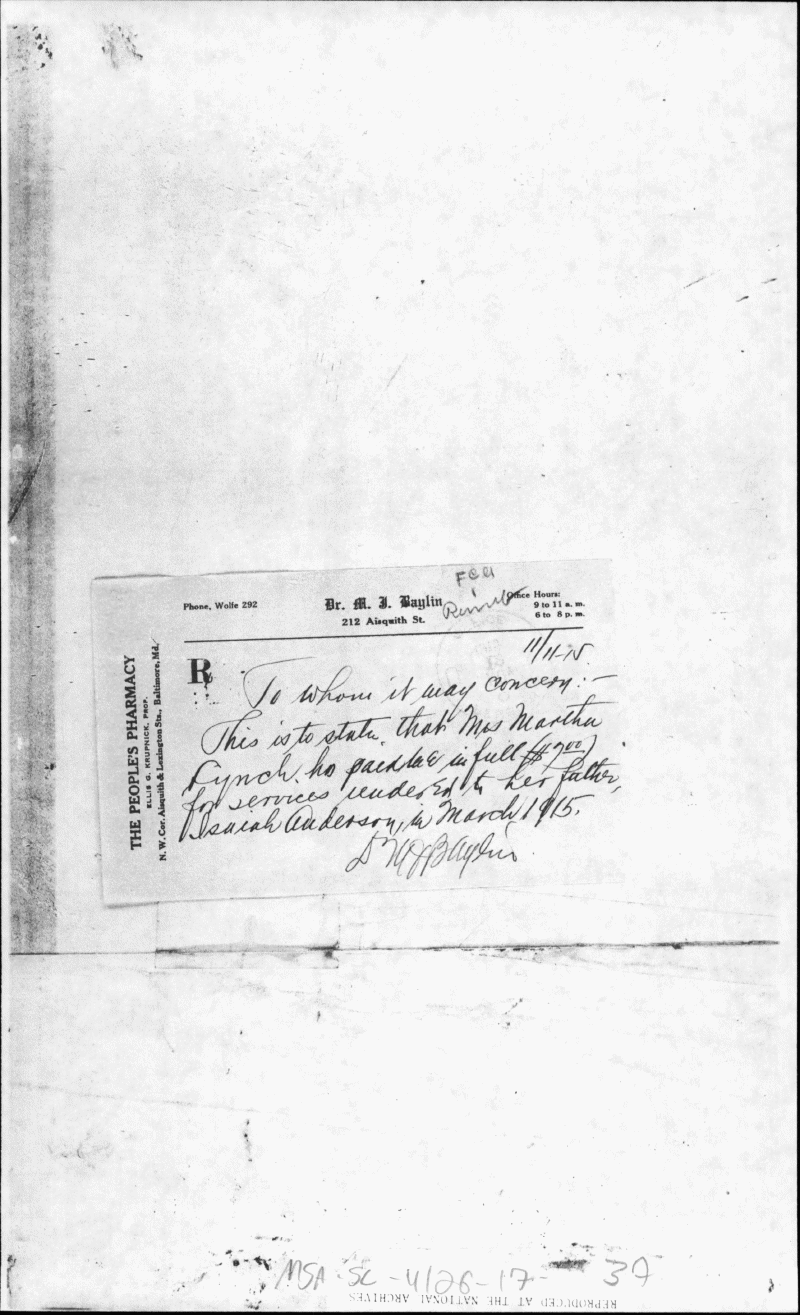 Phone, Wolfe 292
Dr. M. J. Baylin
212 Aisquith St.
Office Hours:
9 to 11 a. m.
6 to 8 p. m.
THE PEOPLE'S PHARMACY
ELLIS G. KRUPNICK, PROP.
N. W. Cor. Aisquith & Lexington Sts., Baltimore, Md.
11/11-15
R
To whom it may concern:-
This is to state, that Mrs Martha
Lynch, ha paid me in full ($7.00)
for services rendered to her father,
Isaiah Anderson, in March 1915.
Dr MJBaylin
MSA SC-4126-17- 37
REPRODUCED AT THE NATIONAL ARCHIVES